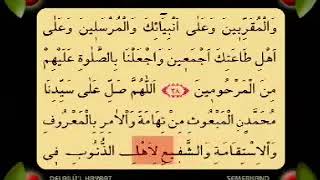 وَالْمُقَرَّبِينَ وَعَلَى اَنْبِيَائِكَ وَالْمُرْسَلِينَ وَعَلَى
اَهْلِ طَاعَتِكَ اَجْمَعِينَ وَاجْعَلْنَا بِالصَّلٰوةِ عَلَيْهِمْ
مِنَ الْمَرْحُومِينَ ﴿٢٨﴾ اَللّٰهُمَّ صَلِّ عَلٰى سَيِّدِنَا
مُحَمَّدٍ الْمَبْعُوثِ مِنْ تِهَامَةَ وَالْاٰمِرِ بِالْمَعْرُوفِ
وَالْاِسْتِقَامَةِ وَالشَّفِيعِ لِاَهْلِ الذُّنُوبِ فِى
DELAİLÜ'L HAYRAT SEMERKAND